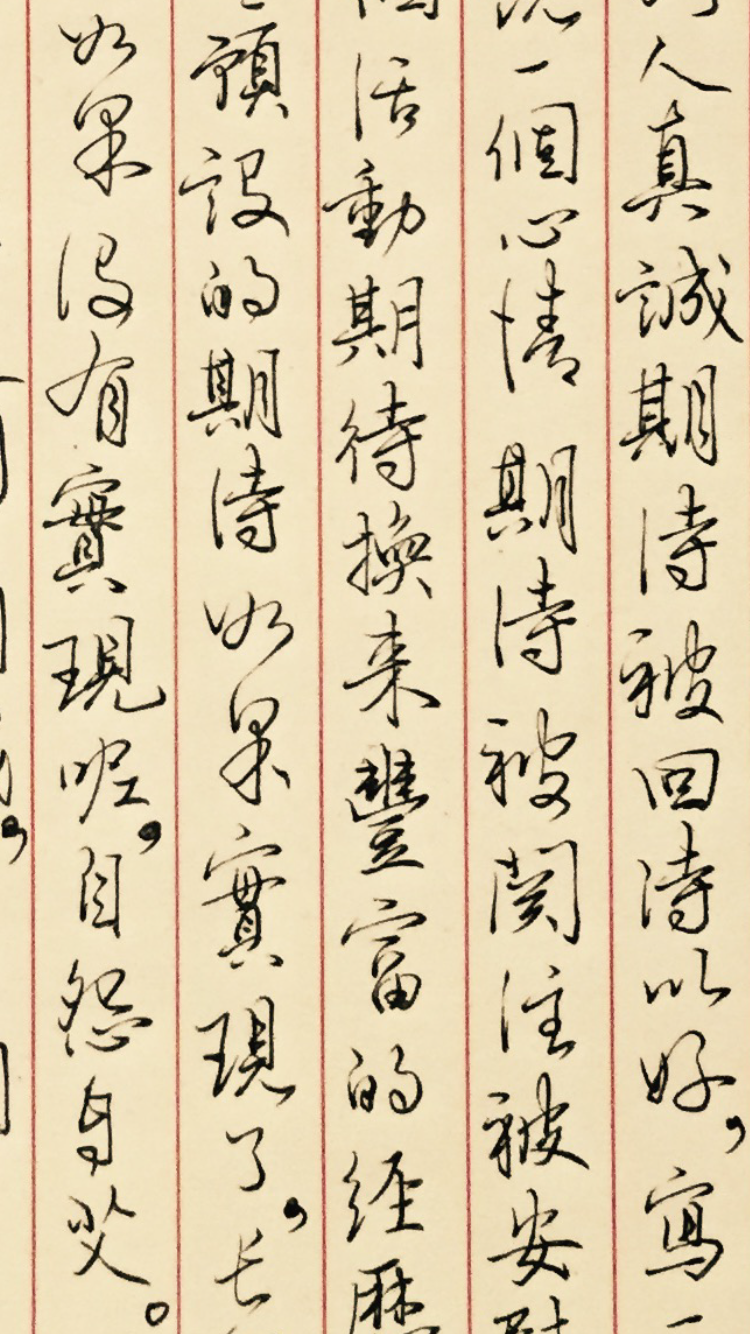 人真誠期待被回待以好，寫一
一個心情期待被関注被安慰
活動期待換来豐富的経歴
預設的期待如果實現了，长
如果没有實現呢，自怨自艾。